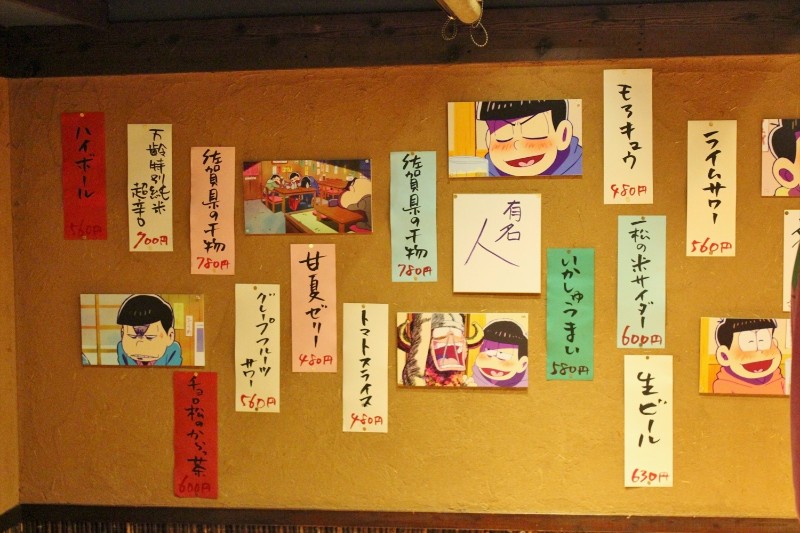 ハイボール
560円
万齢特別純米
超辛口
900円
佐賀県の干物
780円
グレープフルーツ
サワー
560円
チョロ松のからっ茶
600円
甘夏ゼリー
480円
トマトスライス
480円
佐賀県の干物
780円
有名
人
いかしゅうまい
580円
モロキュウ
480円
一松の米サイダー
600円
生ビール
630円
ライムサワー
560円